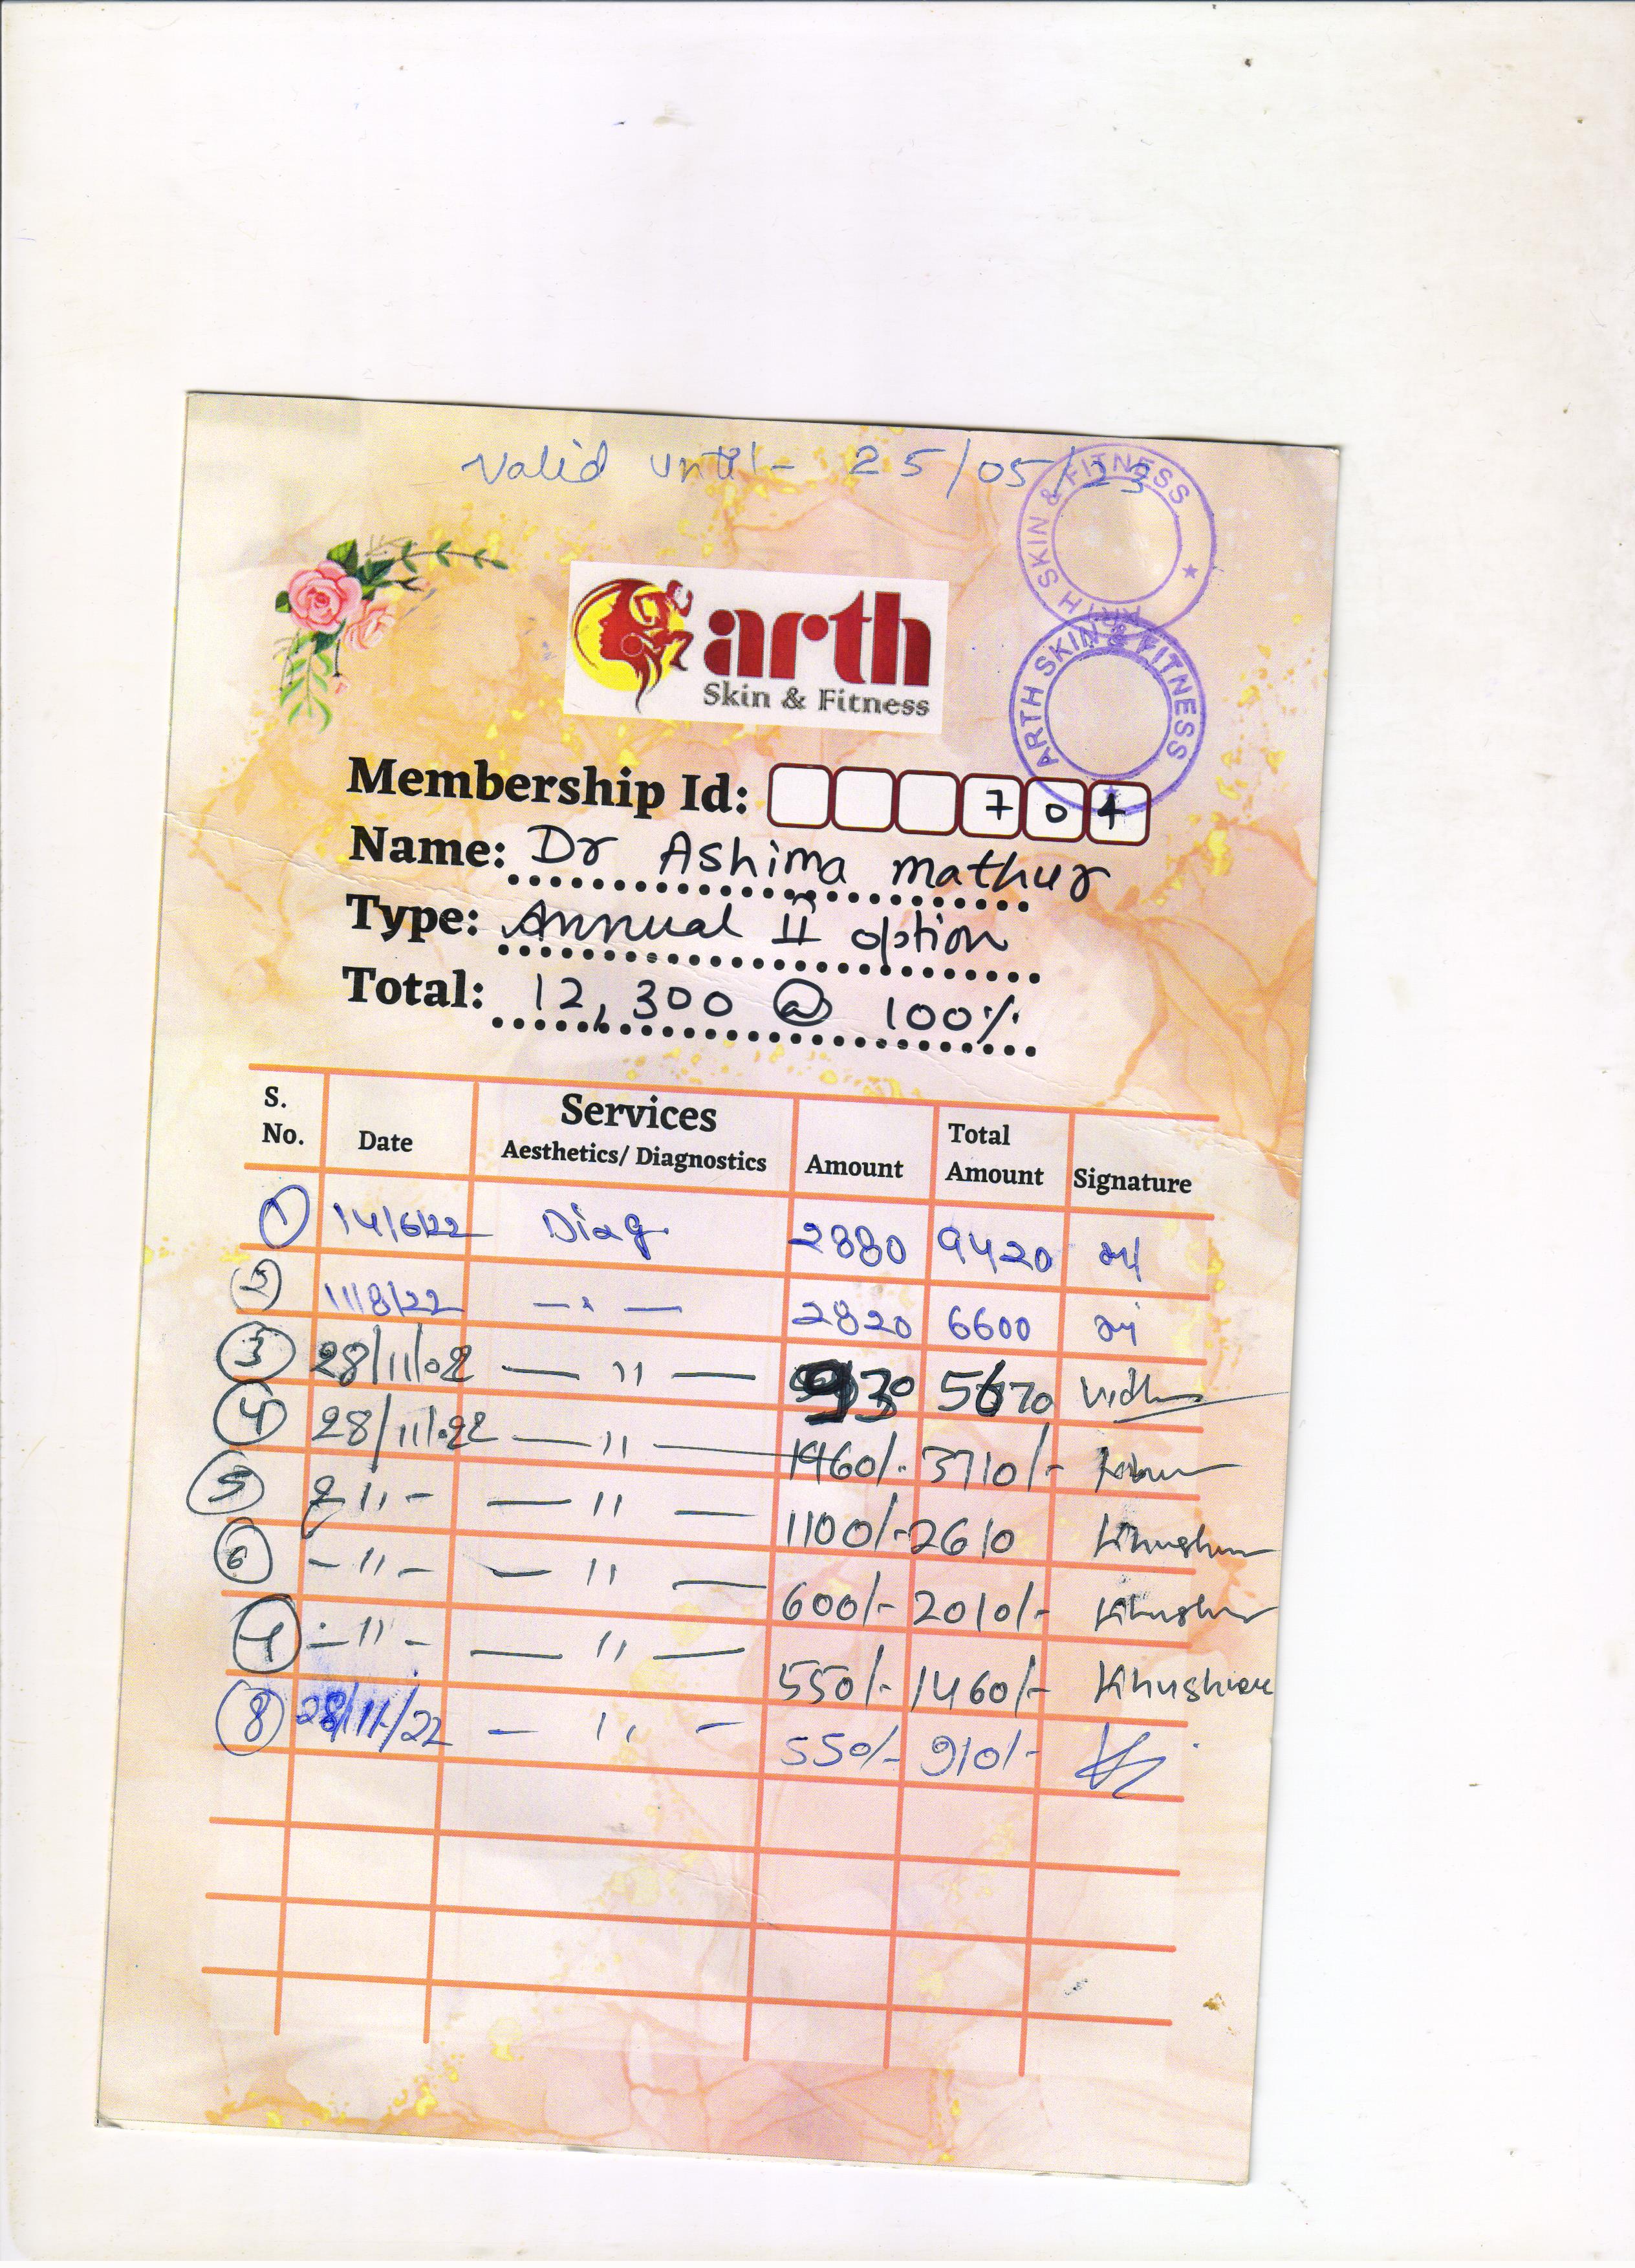 Valid until - 25/05/23
ARTH SKIN & FITNESS
arth
Skin & Fitness
ARTH SKIN & FITNESS
Membership Id: 704
Name: Dr Ashima Mathur
Type: Annual II option
Total: 12,300 @ 100%
S. No. Date Services Aesthetics/ Diagnostics Amount Total Amount Signature
1 14/6/22 Diag 2880 9420
2 11/8/22 — " — 2820 6600
3 28/11/22 — " — 930 5670 Vidh
4 28/11/22 — " — 1960/- 3710/-
5 - " - — " — 1100/- 2610 Khushboo
6 - " - — " — 600/- 2010/- Khushboo
7 - " - — " — 550/- 1460/- Khushboo
8 28/11/22 — " — 550/- 910/-